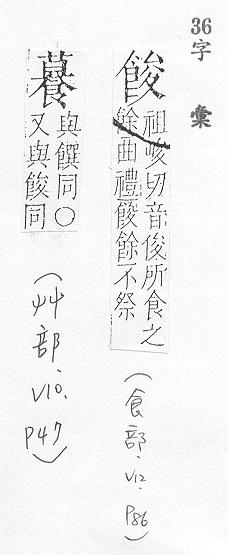 36
字彙
餕
祖峻切音俊所食之
餘曲禮餕餘不祭
(食部.V12.P86)
養
與饌同○
又與餕同
(艸部.V10.P47)